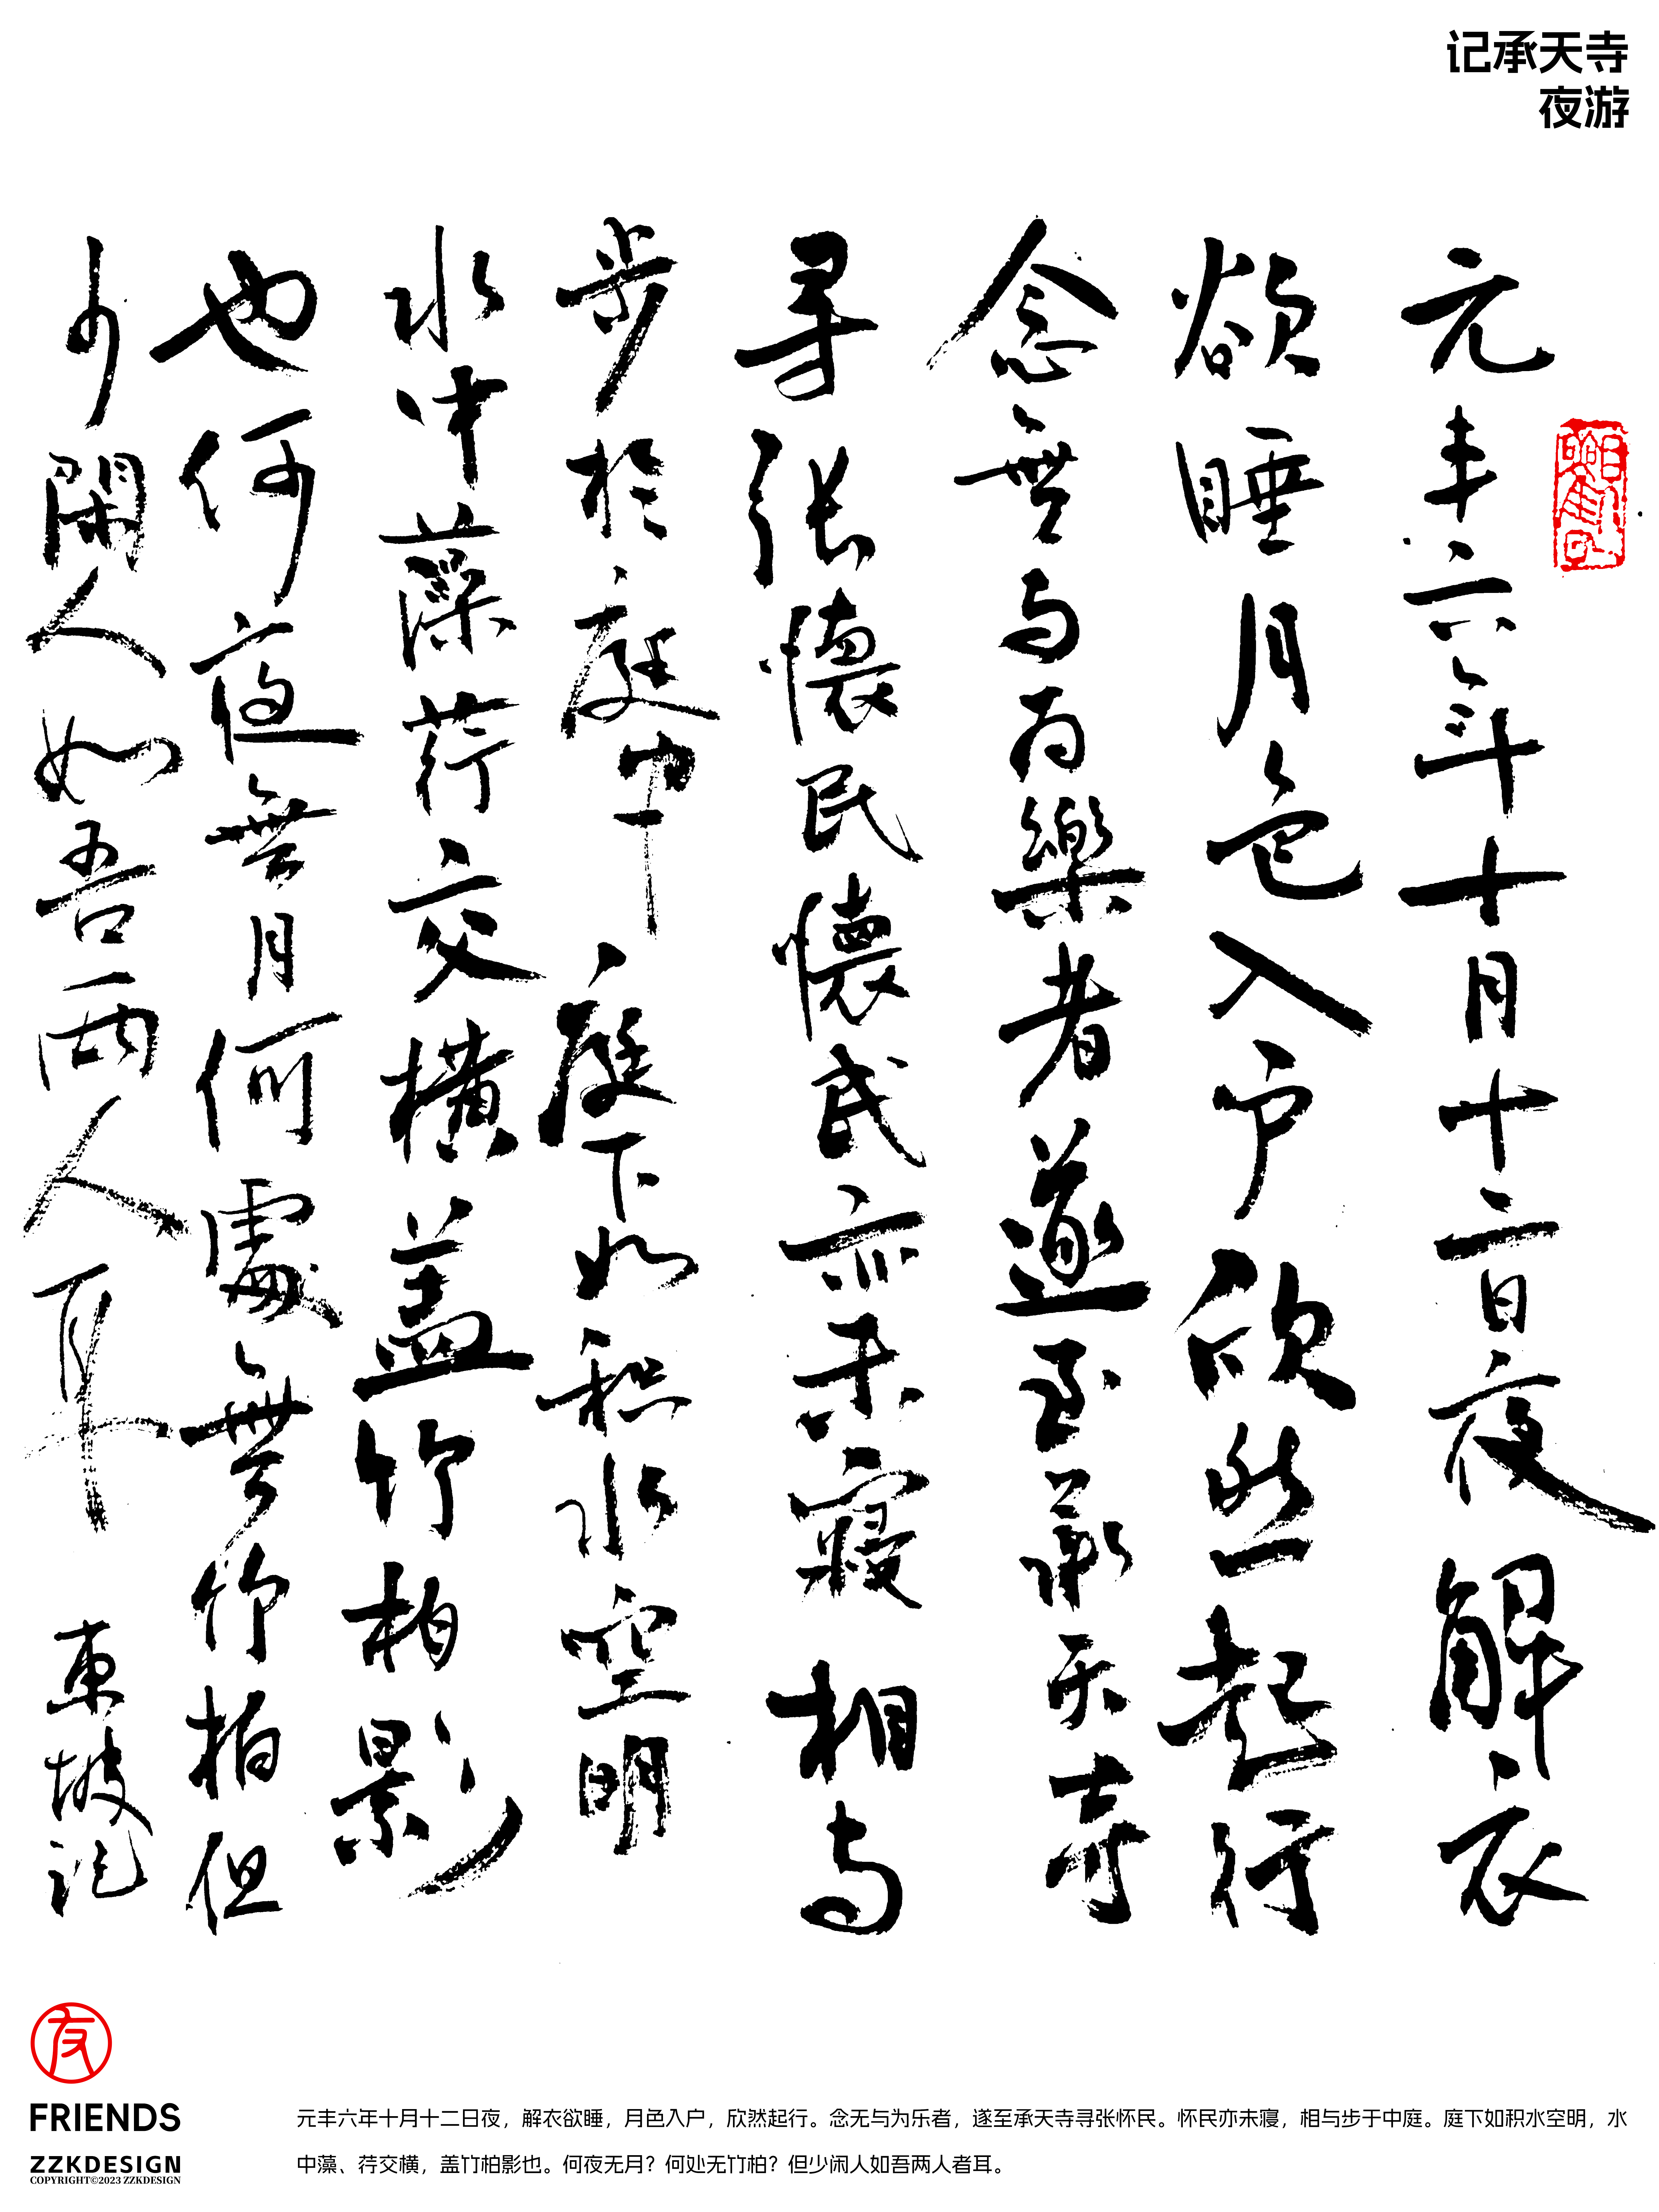 记承天寺
夜游
元丰六年十月十二日夜解衣
欲睡月色入户欣然起行
念無与为樂者遂至承天寺
寻张懷民懷民亦未寢相与
步於庭中庭下如积水空明
水中藻荇交横盖竹柏影
也何夜無月何處無竹柏但
少閑人如吾两人耳 東坡记
友
FRIENDS
ZZKDESIGN
COPYRIGHT©2023 ZZKDESIGN
元丰六年十月十二日夜，解衣欲睡，月色入户，欣然起行。念无与为乐者，遂至承天寺寻张怀民。怀民亦未寝，相与步于中庭。庭下如积水空明，水
中藻、荇交横，盖竹柏影也。何夜无月？何处无竹柏？但少闲人如吾两人者耳。